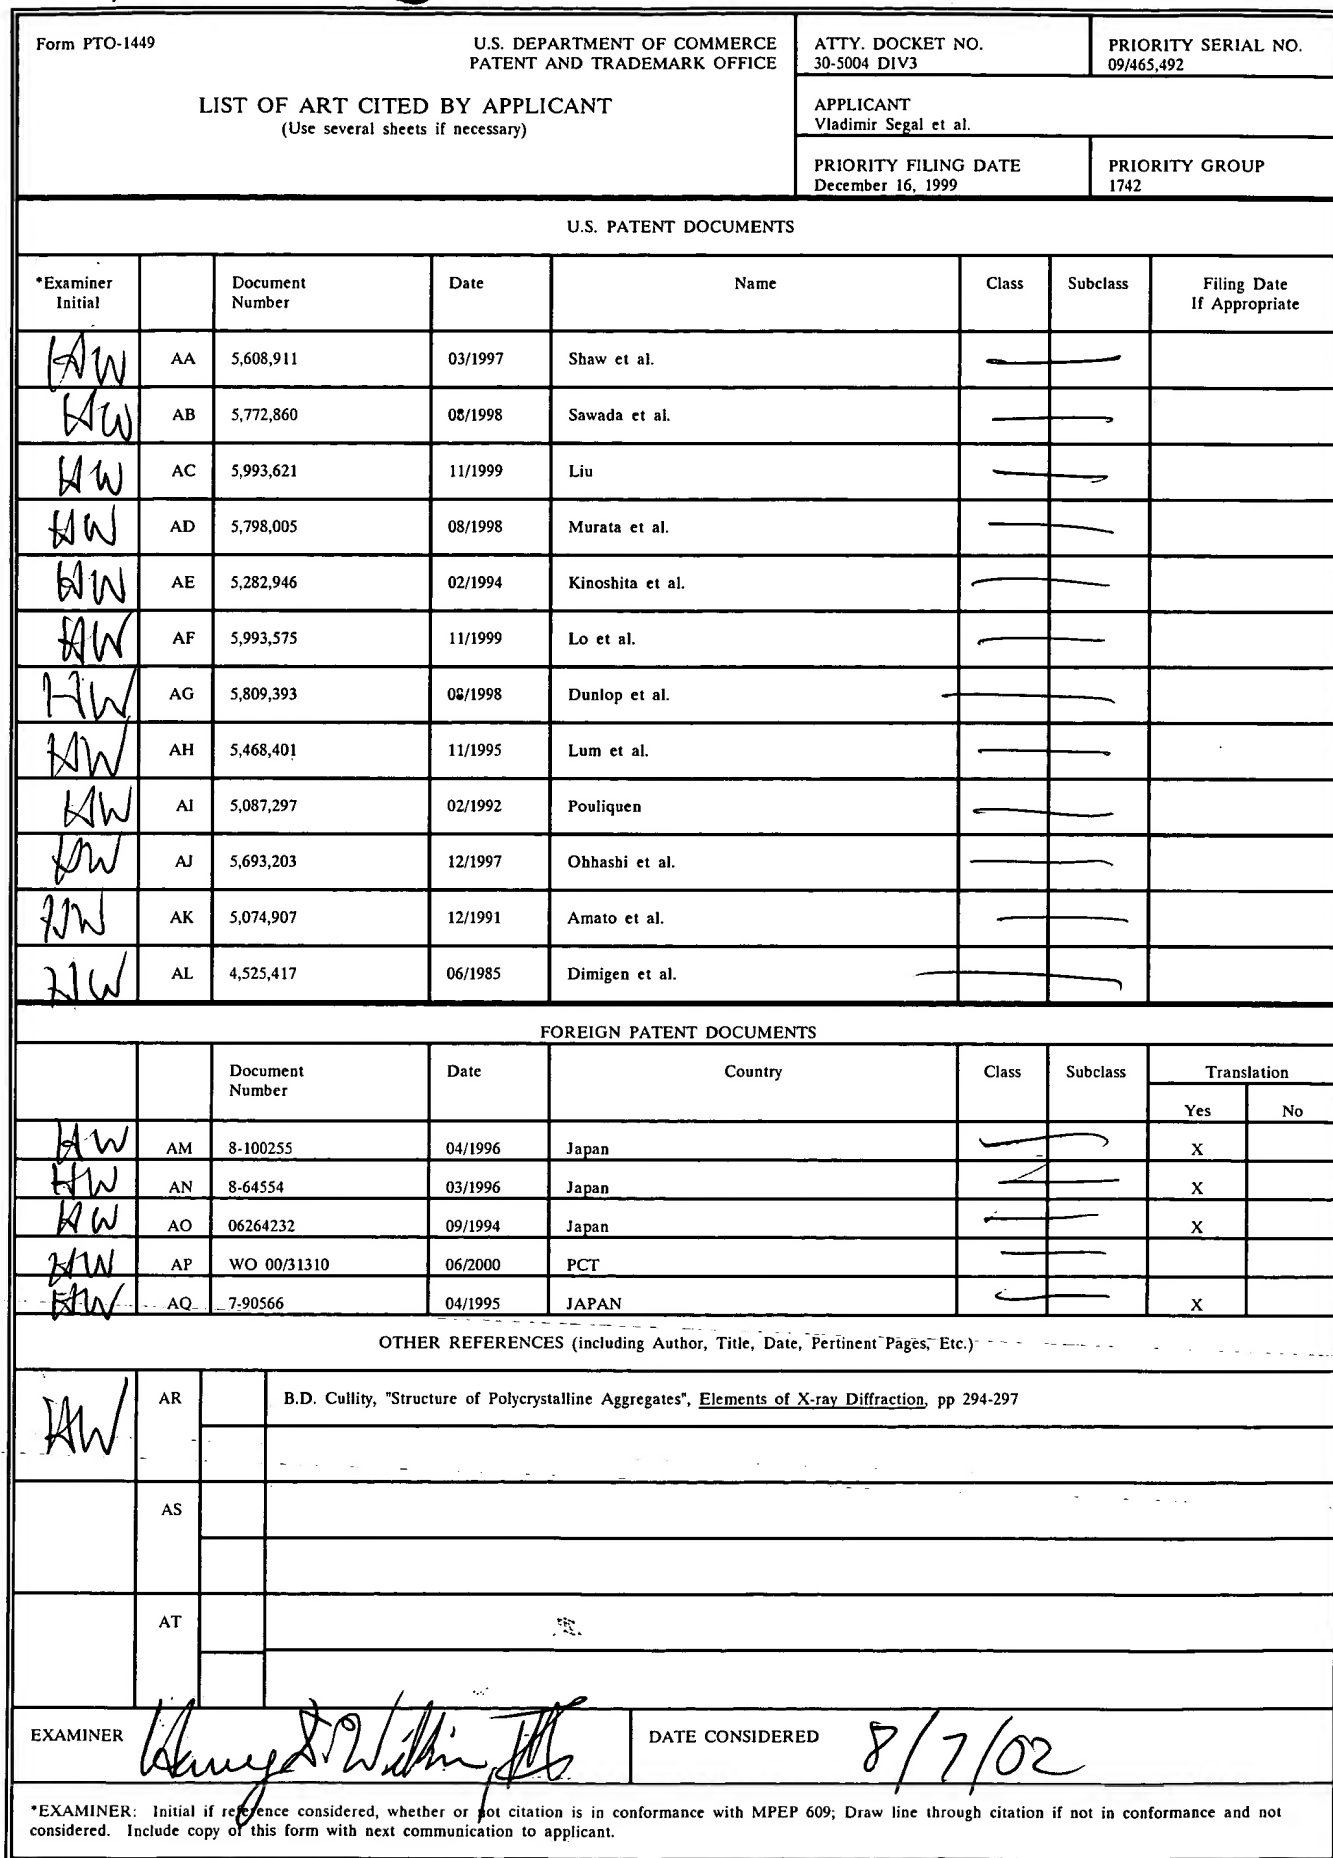 Form PTO-1449
U.S. DEPARTMENT OF COMMERCE
PATENT AND TRADEMARK OFFICE
LIST OF ART CITED BY APPLICANT
(Use several sheets if necessary)
ATTY. DOCKET NO.
30-5004 DIV3
PRIORITY SERIAL NO.
09/465,492
APPLICANT
Vladimir Segal et al.
PRIORITY FILING DATE
December 16, 1999
PRIORITY GROUP
1742
U.S. PATENT DOCUMENTS
*Examiner Initial Document Number Date Name Class Subclass Filing Date If Appropriate
HW AA 5,608,911 03/1997 Shaw et al.
HW AB 5,772,860 08/1998 Sawada et al.
HW AC 5,993,621 11/1999 Liu
HW AD 5,798,005 08/1998 Murata et al.
HW AE 5,282,946 02/1994 Kinoshita et al.
HW AF 5,993,575 11/1999 Lo et al.
HW AG 5,809,393 08/1998 Dunlop et al.
HW AH 5,468,401 11/1995 Lum et al.
HW AI 5,087,297 02/1992 Pouliquen
HW AJ 5,693,203 12/1997 Ohhashi et al.
HW AK 5,074,907 12/1991 Amato et al.
HW AL 4,525,417 06/1985 Dimigen et al.
FOREIGN PATENT DOCUMENTS
Document Number Date Country Class Subclass Translation
Yes No
HW AM 8-100255 04/1996 Japan X
HW AN 8-64554 03/1996 Japan X
HW AO 06264232 09/1994 Japan X
HW AP WO 00/31310 06/2000 PCT
HW AQ 7-90566 04/1995 JAPAN X
OTHER REFERENCES (including Author, Title, Date, Pertinent Pages, Etc.)
HW AR B.D. Cullity, "Structure of Polycrystalline Aggregates", Elements of X-ray Diffraction, pp 294-297
AS
AT
EXAMINER
DATE CONSIDERED 8/7/02
*EXAMINER: Initial if reference considered, whether or not citation is in conformance with MPEP 609; Draw line through citation if not in conformance and not
considered. Include copy of this form with next communication to applicant.